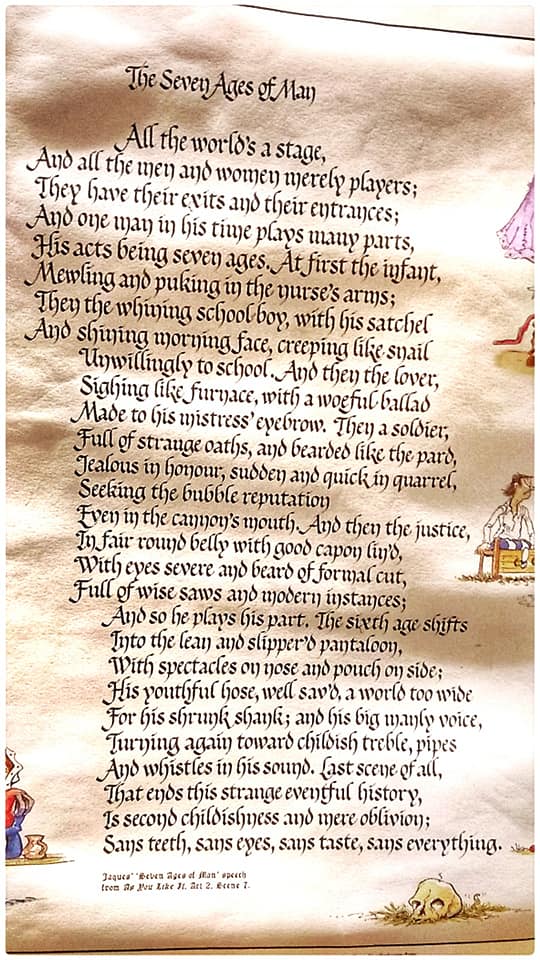 The Seven Ages of Man
All the world's a stage,
And all the men and women merely players;
They have their exits and their entrances;
And one man in his time plays many parts,
His acts being seven ages. At first the infant,
Mewling and puking in the nurse's arms;
Then the whining school-boy, with his satchel
And shining morning face, creeping like snail
Unwillingly to school. And then the lover,
Sighing like furnace, with a woeful ballad
Made to his mistress' eyebrow. Then a soldier,
Full of strange oaths, and bearded like the pard,
Jealous in honour, sudden and quick in quarrel,
Seeking the bubble reputation
Even in the cannon's mouth. And then the justice,
In fair round belly with good capon lin'd,
With eyes severe and beard of formal cut,
Full of wise saws and modern instances;
And so he plays his part. The sixth age shifts
Into the lean and slipper'd pantaloon,
With spectacles on nose and pouch on side;
His youthful hose, well sav'd, a world too wide
For his shrunk shank; and his big manly voice,
Turning again toward childish treble, pipes
And whistles in his sound. Last scene of all,
That ends this strange eventful history,
Is second childishness and mere oblivion;
Sans teeth, sans eyes, sans taste, sans everything.
Jaques' 'Seven Ages of Man' speech
from As You Like It, Act 2, Scene 7.